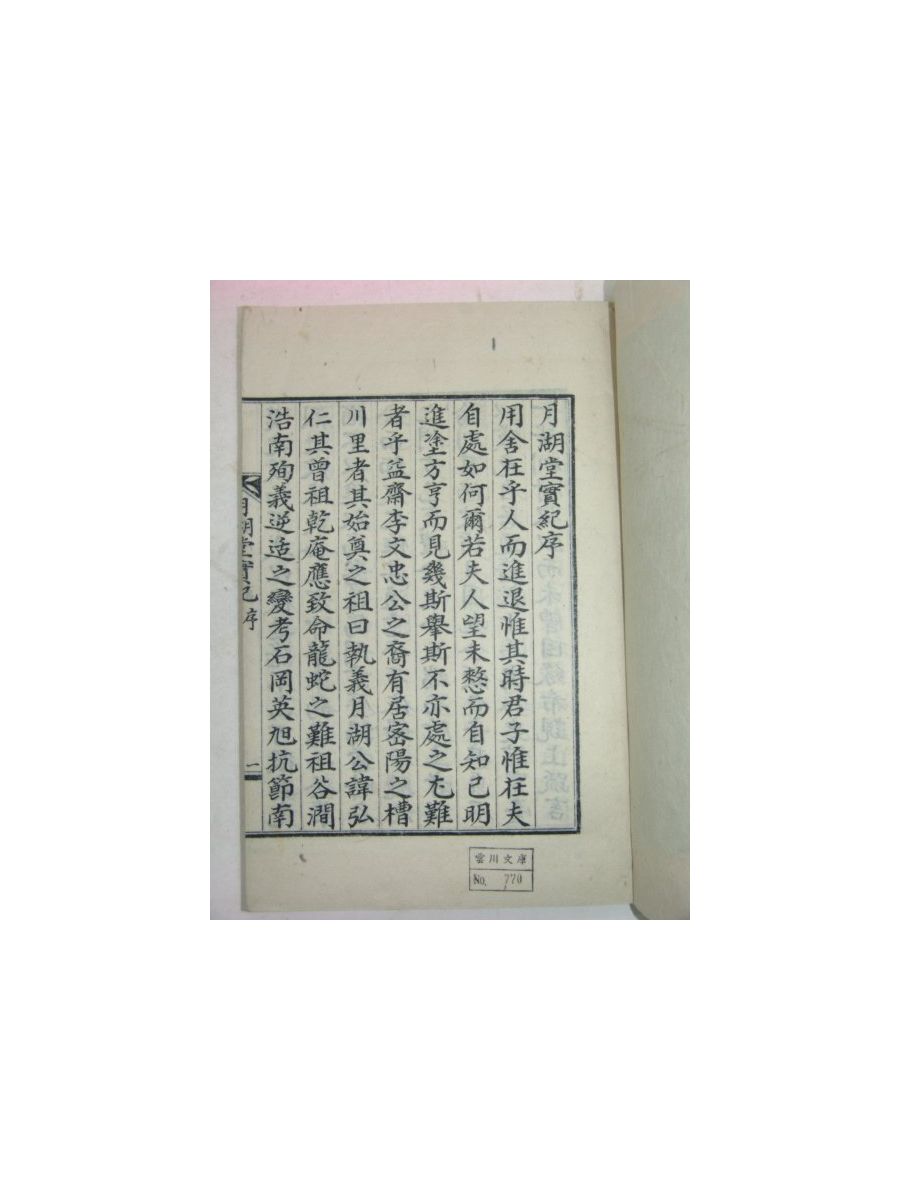 月湖堂實紀序
用舍在乎人而進退惟其時君子惟在夫
自處如何爾若夫人望未愸而自知己明
進塗方亨而見幾斯舉斯不亦處之尤難
者乎益齋李文忠公之裔有居密陽之槽
川里者其始奠之祖曰執義月湖公諱弘
仁其曾祖乾庵應致命龍蛇之難祖谷澗
浩南殉義逆适之變考石岡英旭抗節南
月湖堂實紀序
一
雲川文庫
No. 770